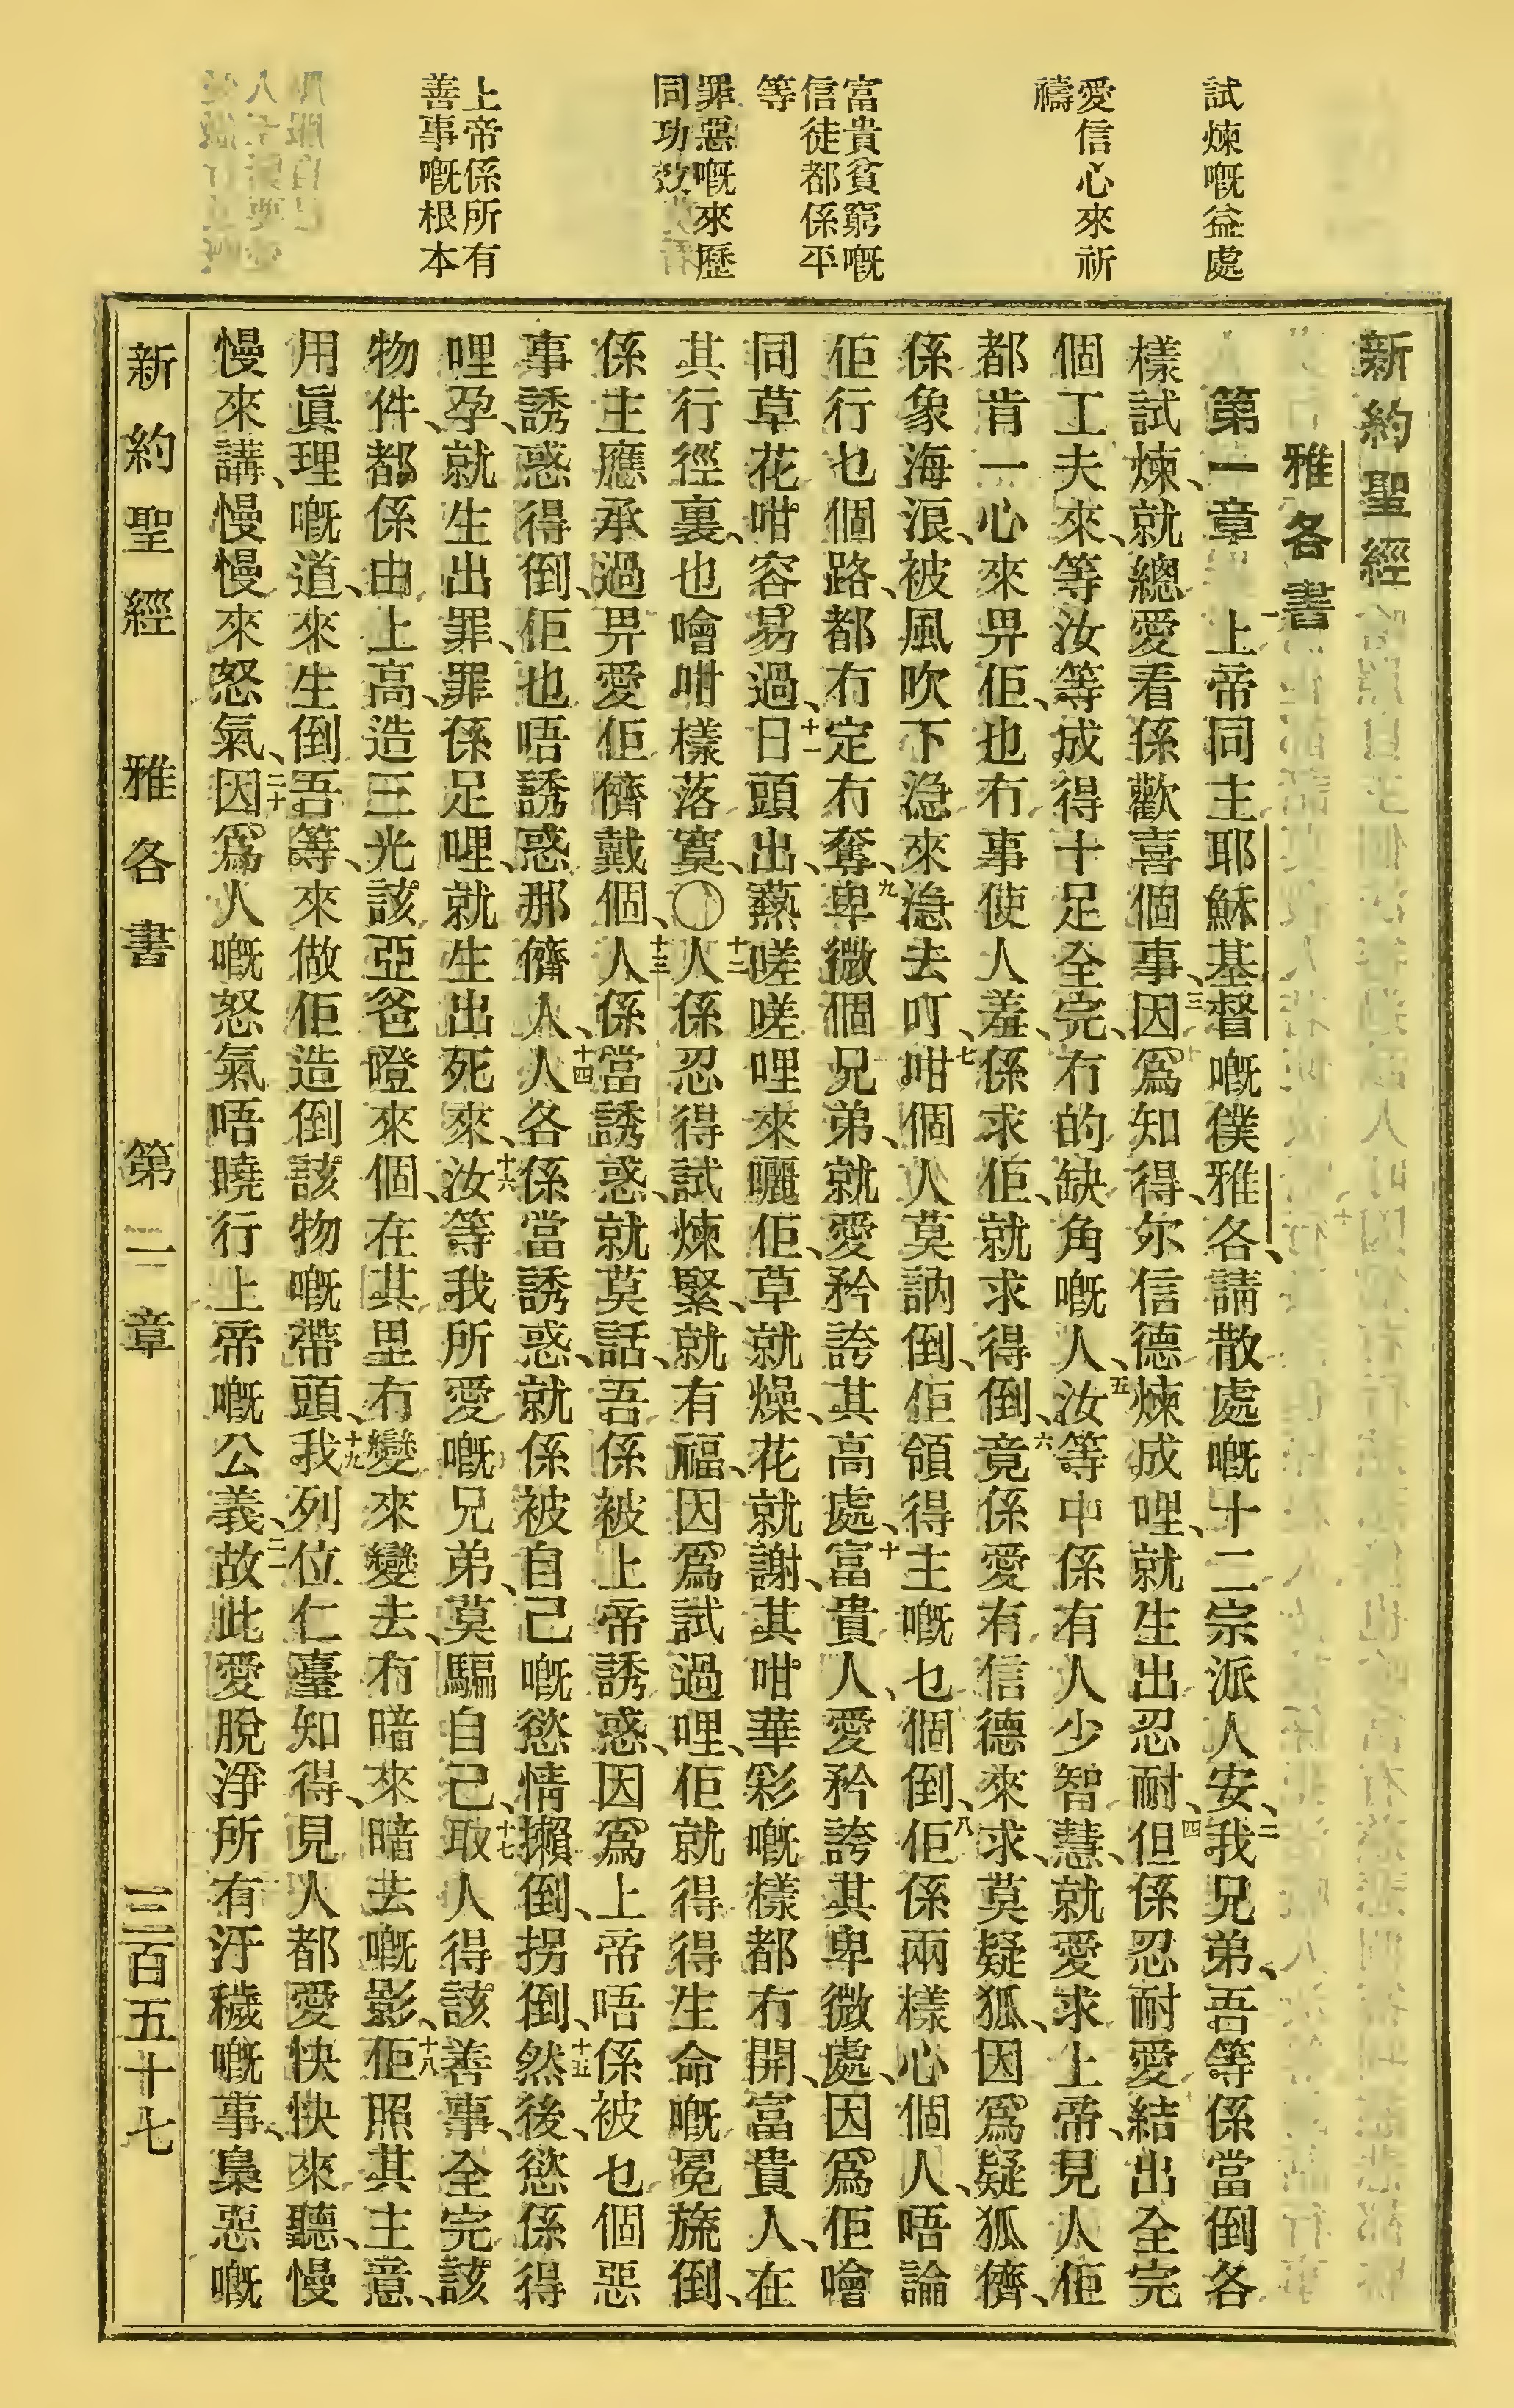 試煉嘅益處
愛信心來祈
禱
富貴貧窮嘅
信徒都係平
等
罪惡嘅來歷
同功效
上帝係所有
善事嘅根本
新約聖經
雅各書
第一章 一上帝同主耶穌基督嘅僕雅各、請散處嘅十二宗派人安、二我兄弟、吾等係當倒各
樣試煉、就總愛看係歡喜個事、三因爲知得、尔信德煉成哩、就生出忍耐、四但係忍耐愛結出全完
個工夫來、等汝等成得十足全完、冇的缺角嘅人、五汝等中係有人少智慧、就愛求上帝、見人佢
都肯一心來畀佢、也冇事使人羞、係求佢、就求得倒、六竟係愛有信德來求、莫疑狐、因爲疑狐儕、
係象海浪、被風吹下急來急去叮、七咁個人莫訥倒、佢領得主嘅乜個倒、八佢係兩樣心個人、唔論
佢行乜個路、都冇定冇奪、九卑微個兄弟、就愛矜誇其高處、十富貴人、愛矜誇其卑微處、因爲佢噲
同草花咁容易過、十一日頭出、爇嗟嗟哩來曬佢、草就燥、花就謝、其咁華彩嘅樣都冇開、富貴人、在
其行徑裏、也噲咁樣落寞、〇十二人係忍得試煉緊、就有福、因爲試過哩、佢就得得生命嘅冕旒倒、
係主應承過畀愛佢儕戴個、十三人係當誘惑、就莫話、吾係被上帝誘惑、因爲上帝唔係被乜個惡
事誘惑得倒、佢也唔誘惑那儕人、十四人各係當誘惑、就係被自己嘅慾情獺倒、拐倒、十五然後、慾係得
哩孕、就生出罪、罪係足哩、就生出死來、十六汝等我所愛嘅兄弟、莫騙自己、十七取人得該善事、全完該
物件、都係由上高、造三光該亞爸嶝來個、在其里冇變來變去、冇暗來暗去嘅影、十八佢照其主意、
用眞理嘅道、來生倒吾等、來做佢造倒該物嘅帶頭、十九我列位仁臺知得、見人都愛快快來聽、慢
慢來講、慢慢來怒氣、二十因爲人嘅怒氣唔曉行上帝嘅公義、二一故此愛脫淨所有汙穢嘅事、梟惡嘅
新約聖經 雅各書 第一章 三百五十七